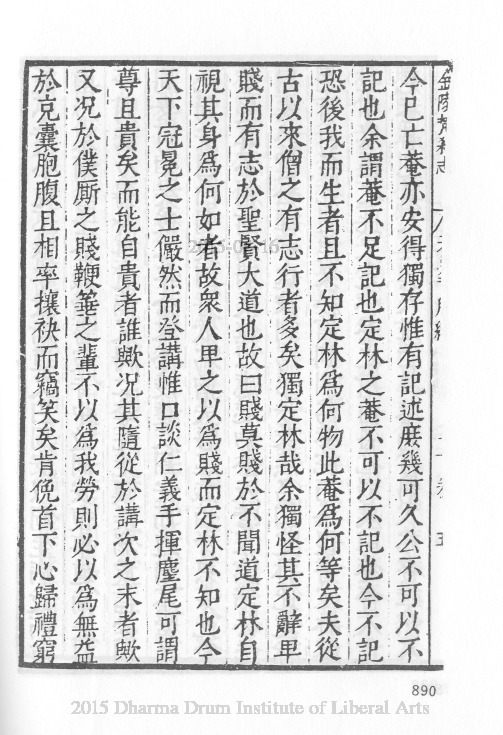 今已亡菴亦安得獨存惟有記述庻幾可久公不可以不
記也余謂菴不足記也定林之菴不可以不記也今不記
恐後我而生者且不知定林爲何物此菴爲何等矣夫從
古以來僧之有志行者多矣獨定林哉余獨怪其不辭卑
賤而有志於聖賢大道也故曰賤莫賤於不聞道定林自
視其身爲何如者故衆人卑之以爲賤而定林不知也今
天下冠冕之士儼然而登講惟口談仁義手揮麈尾可謂
尊且貴矣而能自貴者誰歟况其隨從於講次之末者歟
又况於僕厮之賤鞭箠之輩不以爲我勞則必以爲無益
於克囊胞腹且相率攘袂而竊笑矣肯俛首下心歸禮窮
金陵梵剎志
890
2015 Dharma Drum Institute of Liberal Arts